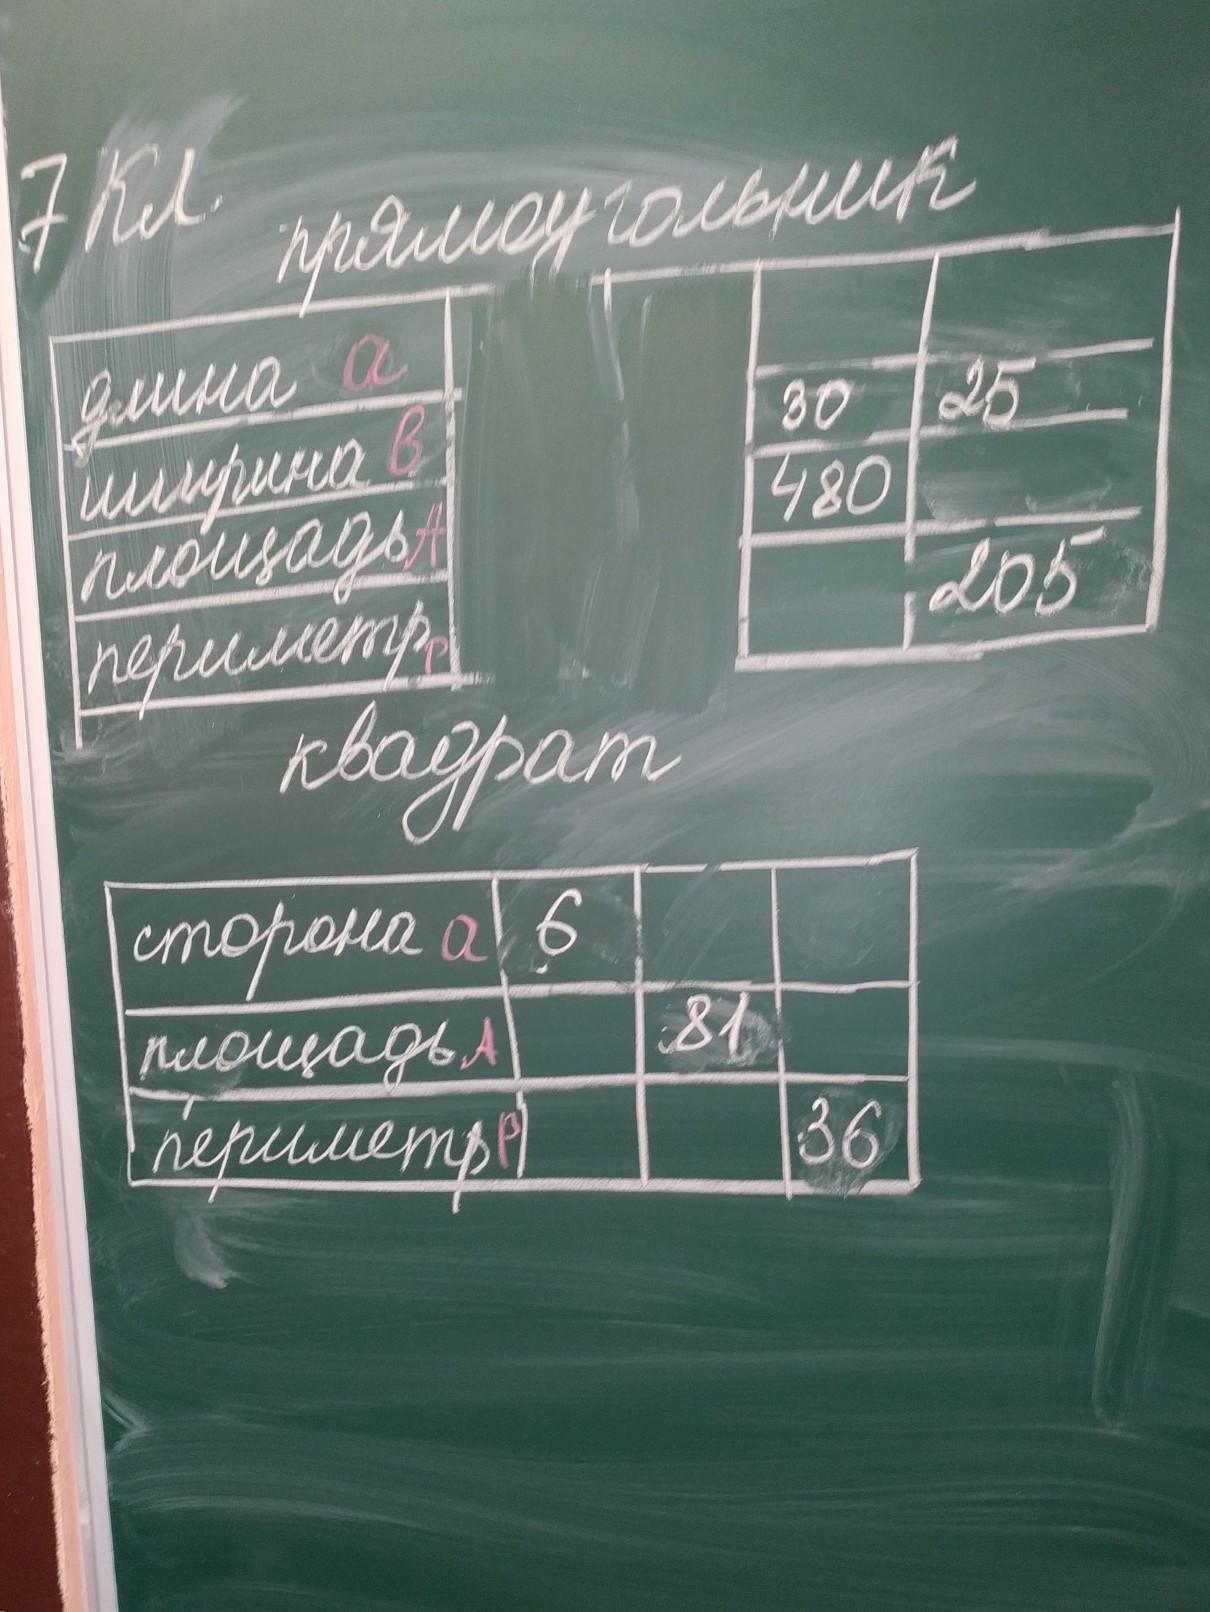 7 кл.
прямоугольник
длина a
ширина в 30 25
площадь A 480
периметр P 205
квадрат
сторона a 6
площадь A 81
периметр P 36